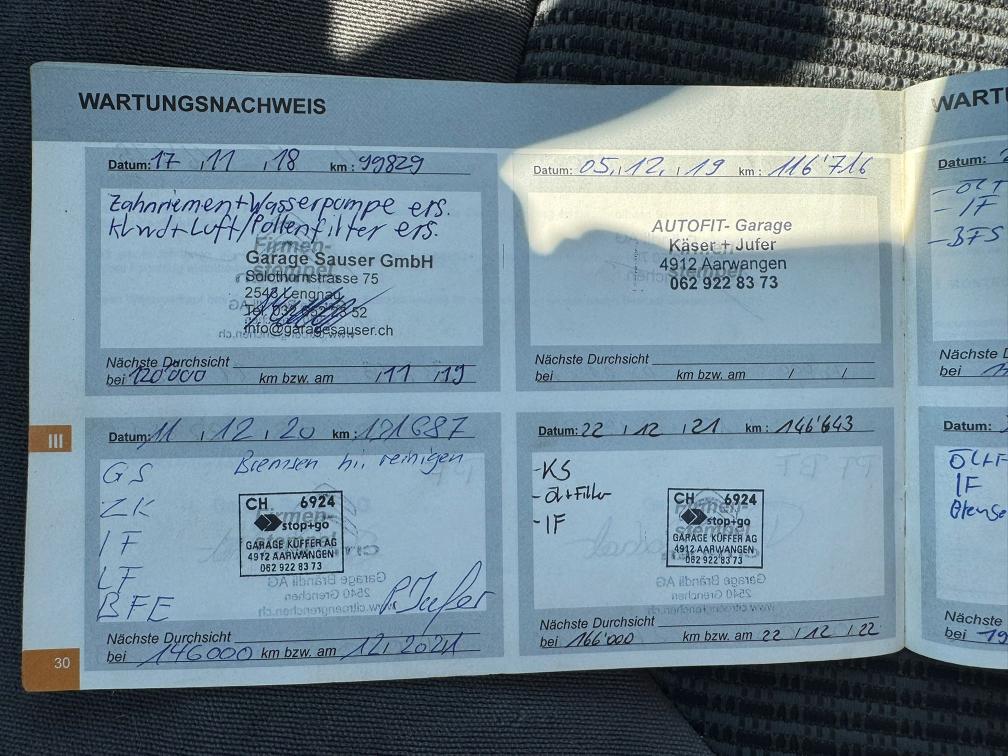 WARTUNGSNACHWEIS
Datum: 17 , 11 , 18 km : 99829
Zahnriemen+Wasserpumpe ers.
Luft/Pollenfilter ers.
Firmen-
stempel
Garage Sauser GmbH
Solothurnstrasse 75
2543 Lengnau
info@garagesauser.ch
Nächste Durchsicht
bei 120'000 km bzw. am , 11 , 19
Datum: 05, 12, , 19 km : 116'716
AUTOFIT- Garage
Käser + Jufer
4912 Aarwangen
062 922 83 73
Nächste Durchsicht
bei km bzw. am / /
Datum: 11 , 12 , 20 km : 131687
GS Bremsen hi. reinigen
ZK
IF
LF
BFE
CH 6924
Firmen-
stop+go
GARAGE KÜFFER AG
4912 AARWANGEN
062 922 83 73
P. Jufer
Nächste Durchsicht
bei 146000 km bzw. am 12, 2021
Datum: 22 , 12 , 21 km : 146'643
-KS
-Öl+Filter
-IF
CH 6924
Firmen-
stop+go
GARAGE KÜFFER AG
4912 AARWANGEN
062 922 83 73
Nächste Durchsicht
bei 166'000 km bzw. am 22 / 12 / 22
III
30
WART
Datum:
-IF
-BFS
Nächste D
bei
Datum:
Öl+F
IF
Bremse
Nächste
bei 19